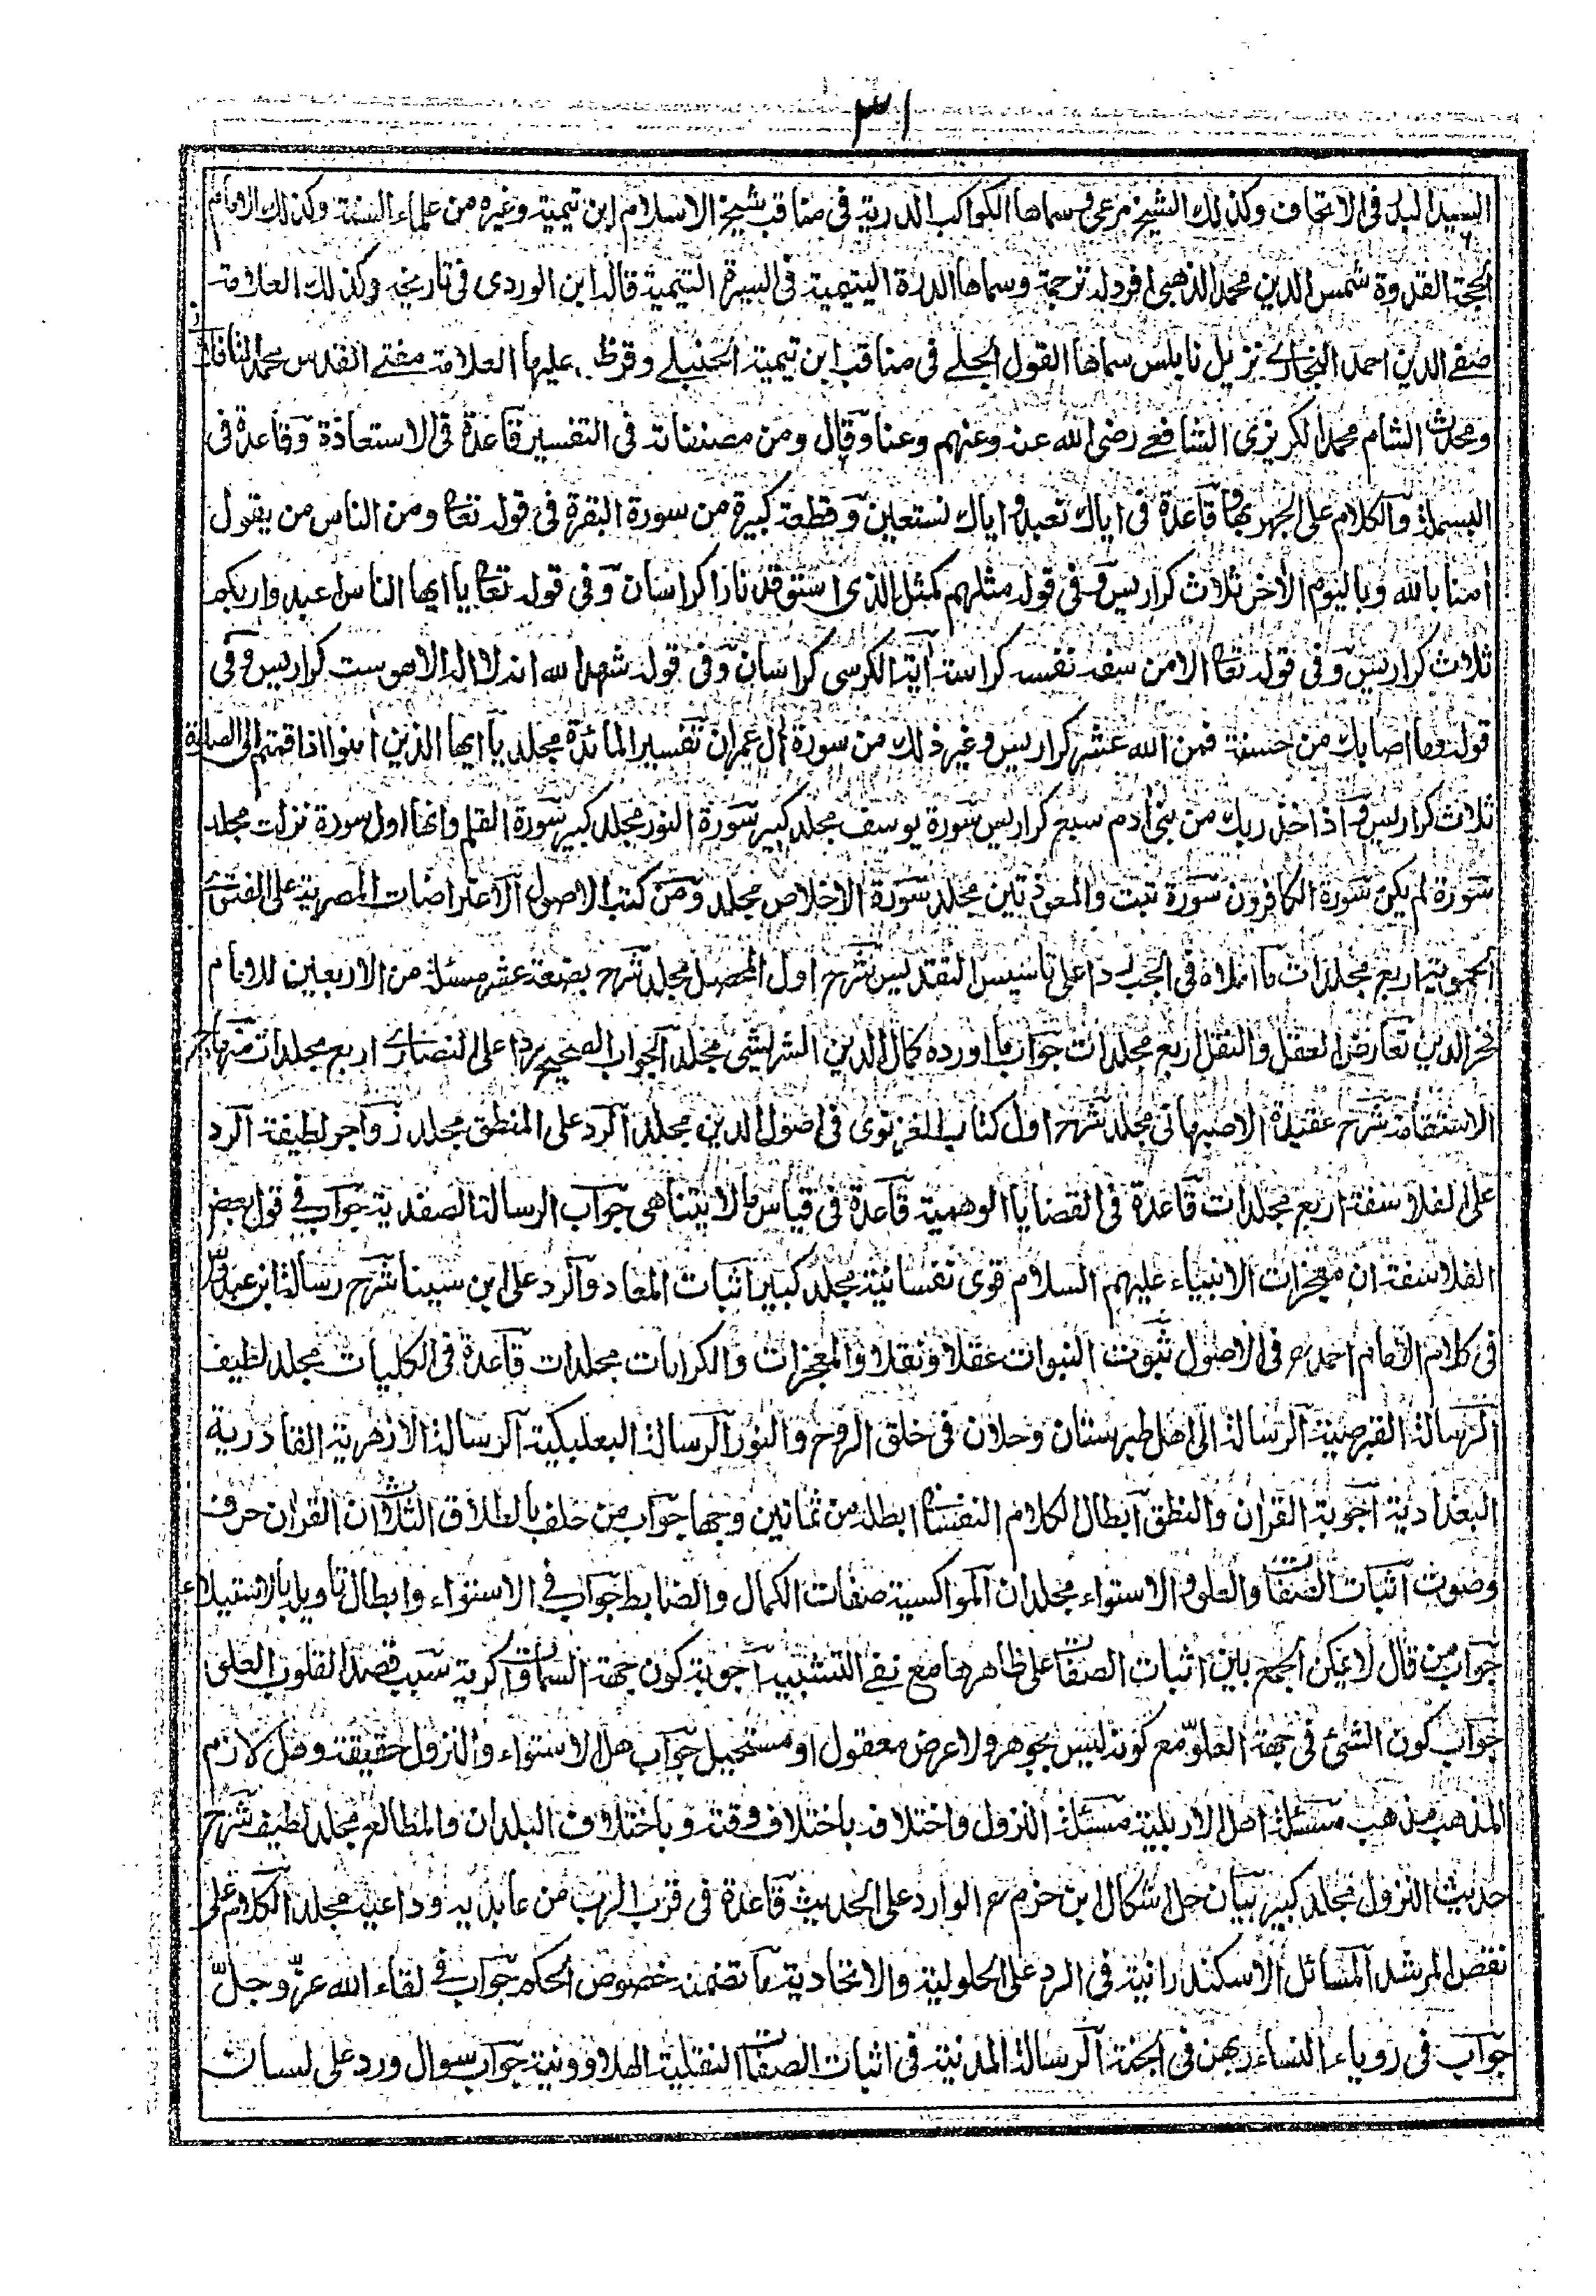 ٣١
السيد البدر فى الاتحاف وكذلك الشيخ مرعى وسماها الكواكب الدرية فى مناقب شيخ الاسلام ابن تيمية وغيره من علماء السنة وكذلك الامام
الحجة القدوة شمس الدين محمد الذهبى افرد له ترجمة وسماها الدرة اليتيمية فى السيرة التيمية قاله ابن الوردى فى تاريخه وكذلك العلامة
صفے الدين احمد البخارے نزيل نابلس سماها القول الجلے فى مناقب ابن تيمية الحنبلے وقرظ عليها العلامة مفتے القدس محمد التافلاتے
ومحدث الشام محمد الكزبرى الشافعے رضى الله عنه وعنهم وعنا وقال ومن مصنفاته فى التفسير قاعدة فى الاستعاذة وقاعدة فى
البسملة والكلام على الجهر بها وقاعدة فى اياك نعبد واياك نستعين وقطعة كبيرة من سورة البقرة فى قوله تعا ومن الناس من يقول
امنا بالله وباليوم الأخر ثلاث كراريس وفى قوله مثلهم كمثل الذى استوقد نارا كراسان وفى قوله تعا يا ايها الناس اعبدوا ربكم
ثلاث كراريس وفى قوله تعا الا من سفه نفسه كراسة آية الكرسى كراسان وفى قوله شهد الله انه لا اله الا هو ست كراريس وفى
قوله وما اصابك من حسنة فمن الله عشر كراريس وغير ذلك من سورة أل عمران تفسير المائدة مجلد يا ايها الذين أمنوا اذا قمتم الى الصلوة
ثلاث كراريس واذ اخذ ربك من بنى أدم سبع كراريس سورة يوسف مجلد كبير سورة النور مجلد كبير سورة القلم وانها اول سورة نزلت مجلد
سورة لم يكن سورة الكافرون سورة تبت والمعوذتين مجلد سورة الاخلاص مجلد ومن كتب الاصول الاعتراضات المصرية على الفتوى
الحموية اربع مجلدات ما املاه فى الجب ردا على تاسيس التقديس شرح اول المحصل مجلد شرح بضعة عشر مسئلة من الاربعين للامام
فخر الدين تعارض العقل والنقل اربع مجلدات جواب ما اورده كمال الدين الشريشى مجلد الجواب الصحيح ردا على النصارے اربع مجلدات منهاج
الاستقامة شرح عقيدة الاصبهانى مجلد شرح اول كتاب الغزنوى فى اصول الدين مجلد الرد على المنطق مجلد زواجر لطيفة الرد
على الفلاسفة اربع مجلدات قاعدة فى القضايا الوهمية قاعدة فى قياس ما لا يتناهى جواب الرسالة الصفدية جواب فى قول بعض
الفلاسفة ان معجزات الانبياء عليهم السلام قوى نفسانية مجلد كبير اثبات المعاد والرد على ابن سينا شرح رسالة ابن عبدوس
فى كلام الامام احمد رح فى الاصول ثبوت النبوات عقلا ونقلا والمعجزات والكرامات مجلدات قاعدة فى الكليات مجلد لطيف
الرسالة القبرصية الرسالة الى اهل طبرستان وجلان فى خلق الروح والنور الرسالة البعلبكية الرسالة الازهرية القادرية
البغدادية اجوبة القران والنطق ابطال الكلام النفسانى ابطله من ثمانين وجها جواب من حلف بالطلاق الثلاث ان القران حرف
وصوت اثبات الصفات والعلو والاستواء مجلدان المراكسية صفات الكمال والضابط جواب فى الاستواء وابطال تاويله بالاستيلاء
جواب من قال لا يمكن الجمع بين اثبات الصفات على ظاهرها مع نفے التشبيه اجوبة كون جهة السماوات كرية سبب قصد القلوب العلى
جواب كون الشئ فى جهة العلو مع كونه ليس بجوهر ولا عرض معقول او مستحيل جواب هل الاستواء والنزول حقيقة وهل لازم
المذهب مذهب مسئلة اهل الاربلية مسئلة النزول واختلافه باختلاف وقته وباختلاف البلدان والمطالع مجلد لطيف شرح
حديث النزول مجلد كبير بيان حل اشكال ابن حزم رح الوارد على الحديث قاعدة فى قرب الرب من عابديه وداعيه مجلد الكلام على
نقض المرشد المسائل الاسكندرانية فى الرد على الحلولية والاتحادية ما تضمنه خصوص الحكم جواب فى لقاء الله عزّ وجلّ
جواب فى روياء النساء ربهن فى الجنة الرسالة المدنية فى اثبات الصفات النقلية الهلاوونية جواب سوال ورد على لسان